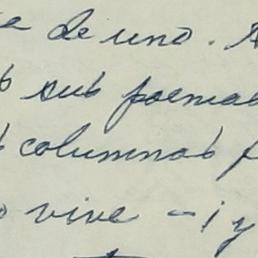 de uno.
sub poemas
columnas
vive - ¡ y